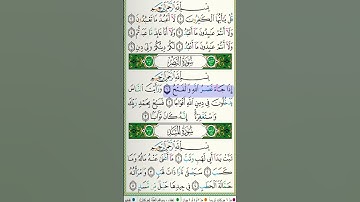 بِسْمِ ٱللَّهِ ٱلرَّحْمَٰنِ ٱلرَّحِيمِ
قُلْ يَٰٓأَيُّهَا ٱلْكَٰفِرُونَ ١ لَآ أَعْبُدُ مَا تَعْبُدُونَ ٢
وَلَآ أَنتُمْ عَٰبِدُونَ مَآ أَعْبُدُ ٣ وَلَآ أَنَا۠ عَابِدٌ مَّا عَبَدتُّمْ ٤
وَلَآ أَنتُمْ عَٰبِدُونَ مَآ أَعْبُدُ ٥ لَكُمْ دِينُكُمْ وَلِيَ دِينِ ٦
سُورَةُ النَّصْرِ
بِسْمِ ٱللَّهِ ٱلرَّحْمَٰنِ ٱلرَّحِيمِ
إِذَا جَآءَ نَصْرُ ٱللَّهِ وَٱلْفَتْحُ ١ وَرَأَيْتَ ٱلنَّاسَ
يَدْخُلُونَ فِي دِينِ ٱللَّهِ أَفْوَاجًا ٢ فَسَبِّحْ بِحَمْدِ رَبِّكَ
وَٱسْتَغْفِرْهُ إِنَّهُۥ كَانَ تَوَّابًۢا ٣
سُورَةُ المَسَدِ
بِسْمِ ٱللَّهِ ٱلرَّحْمَٰنِ ٱلرَّحِيمِ
تَبَّتْ يَدَآ أَبِي لَهَبٍ وَتَبَّ ١ مَآ أَغْنَىٰ عَنْهُ مَالُهُۥ وَمَا
كَسَبَ ٢ سَيَصْلَىٰ نَارًا ذَاتَ لَهَبٍ ٣ وَٱمْرَأَتُهُۥ
حَمَّالَةَ ٱلْحَطَبِ ٤ فِي جِيدِهَا حَبْلٌ مِّن مَّسَدٍۭ ٥